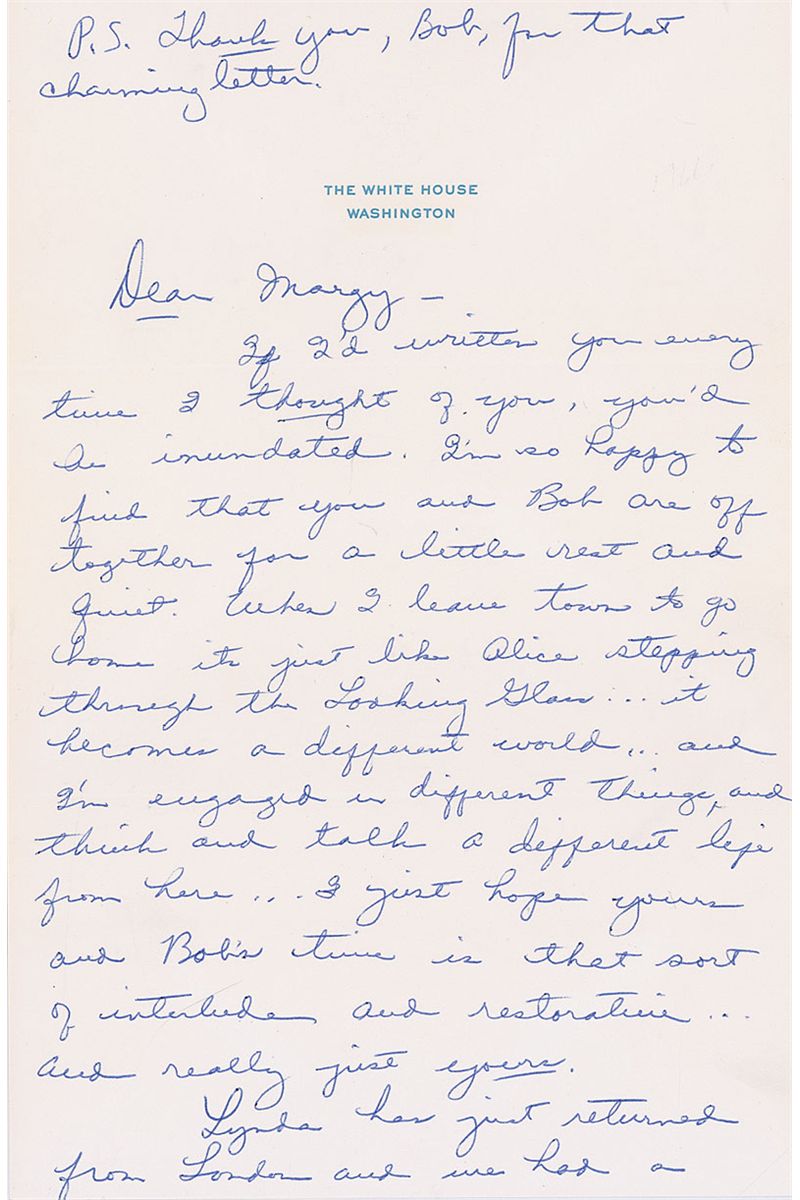 P.S. Thank you, Bob, for that
charming letter.
THE WHITE HOUSE
WASHINGTON
Dear Margy —
If I'd written you every
time I thought of you, you'd
be inundated. I'm so happy to
find that you and Bob are off
together for a little rest and
quiet. When I leave town to go
home it's just like Alice stepping
through the Looking Glass... it
becomes a different world... and
I'm engaged in different things, and
think and talk a different life
from here... I just hope yours
and Bob's time is that sort
of interlude and restorative...
and really just yours.
Lynda has just returned
from London and we had a